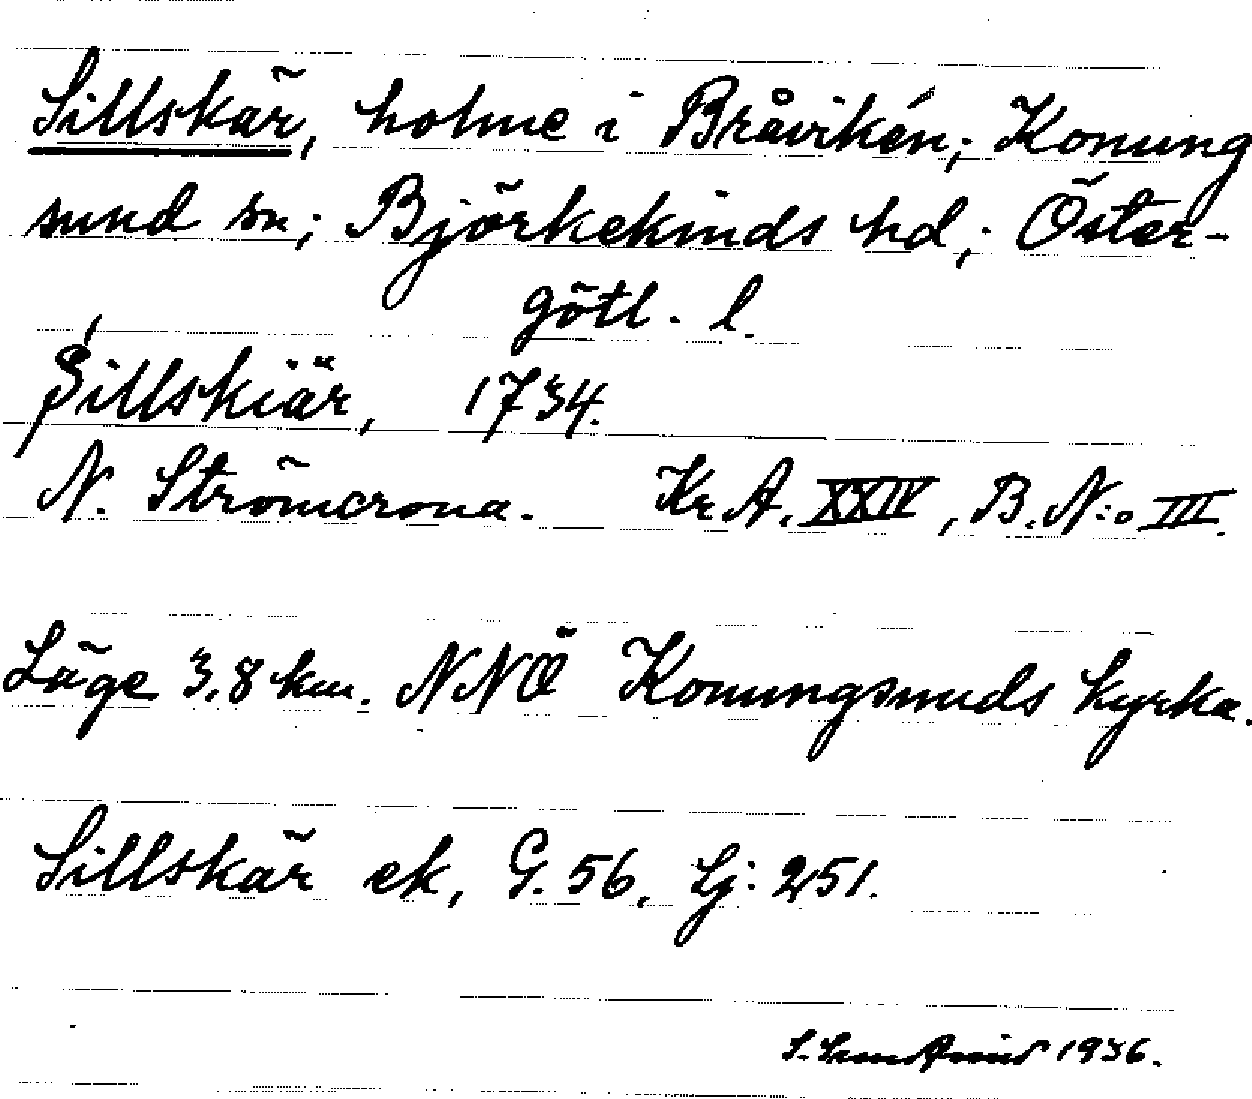 Sillskär, holme i Bråviken; Konung
sund sn; Björkekinds hd; Öster-
götl. l.
Sillskiär, 1734.
N. Strömcrona. Kr. A. XXIV, B. N:o III.
Läge 3,8 km. NNÖ Konungsunds kyrka.
Sillskär ek, G. 56. Lj: 251.
S. 1936.